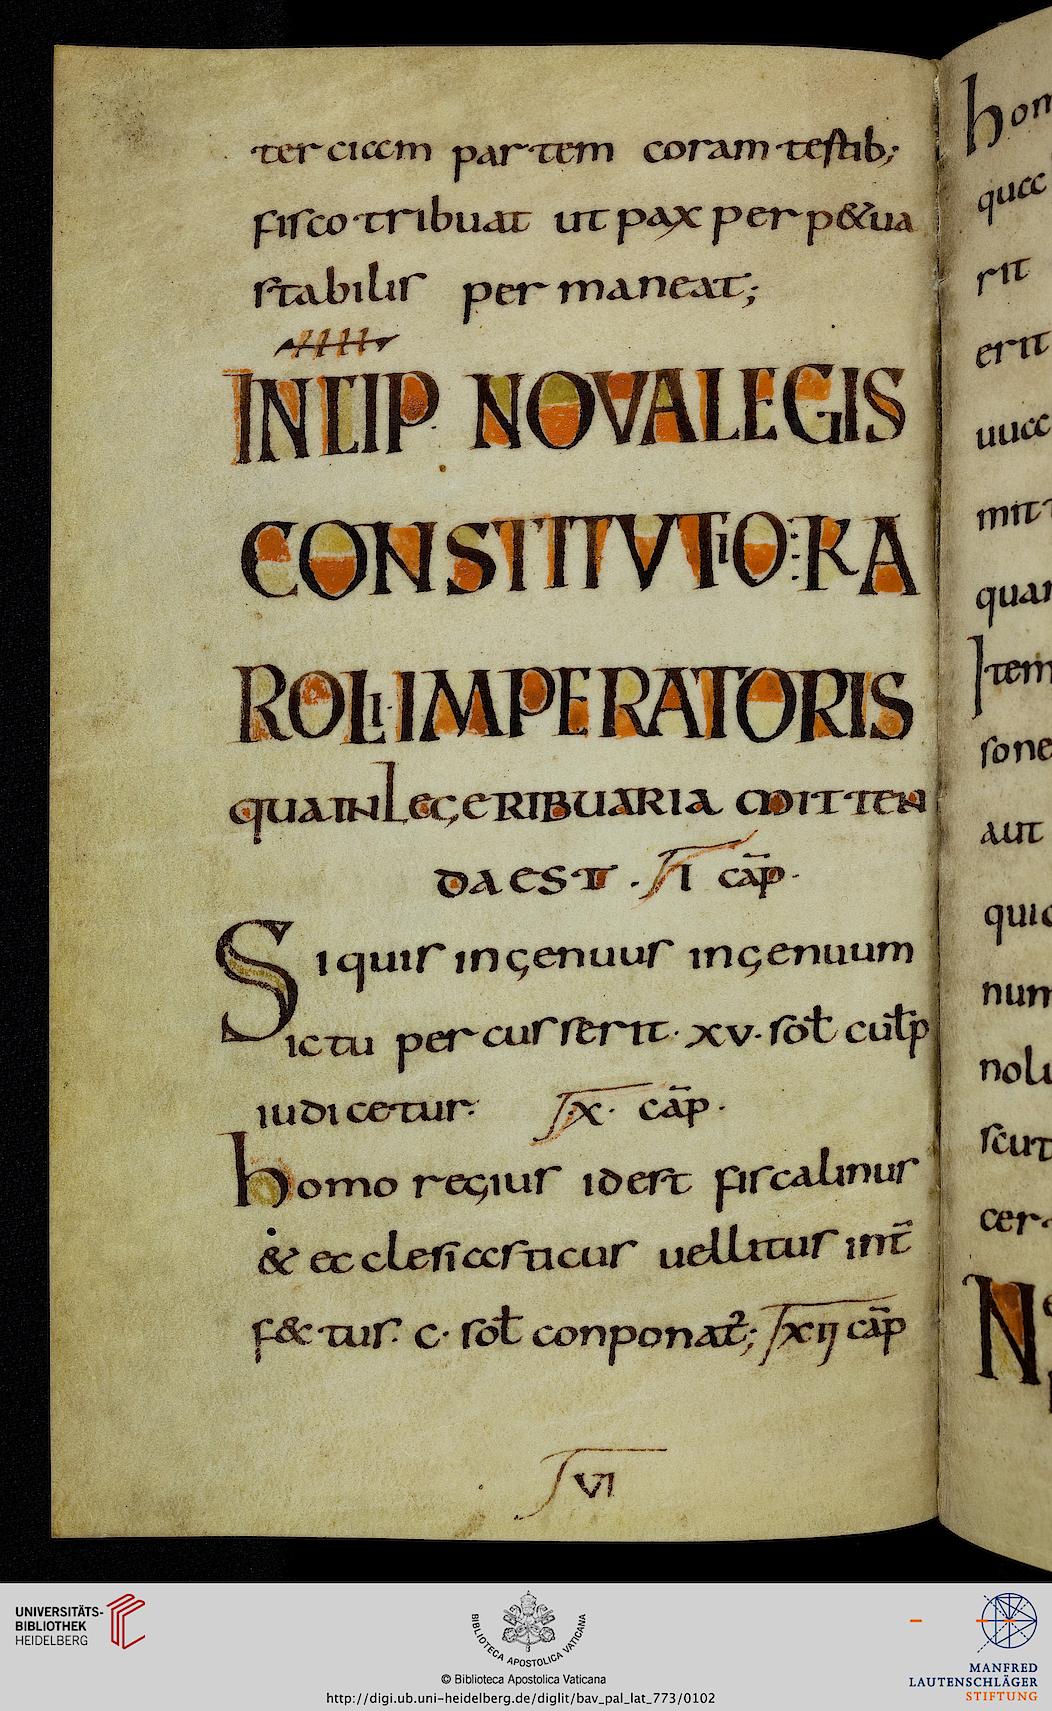 terciam partem coram testib;
fisco tribuat ut pax per p&ua
stabilis per maneat;
INCIP NOVA LEGIS
CONSTITVTIO: KA
ROLI·IMPERATORIS
QUAINLEGERIBUARIA MITTEN
DA EST · I cap̄·
Si quis ingenuus ingenuum
ictu percusserit· xv· sol̄ cul̄p
iudicetur· x· cap̄·
homo regius idest fiscalinus
& ecclesiasticus uel litus int̄
f&tus· c· sol̄ conponat̄; xij cap̄
VI
hom
qua
rit
erit
uua
mitt
quan
Item
sone
aut
quic
num
nolu
scut
cer
Ne
UNIVERSITÄTS-
BIBLIOTHEK
HEIDELBERG
BIBLIOTECA APOSTOLICA VATICANA
© Biblioteca Apostolica Vaticana
http://digi.ub.uni-heidelberg.de/diglit/bav_pal_lat_773/0102
MANFRED
LAUTENSCHLÄGER
STIFTUNG